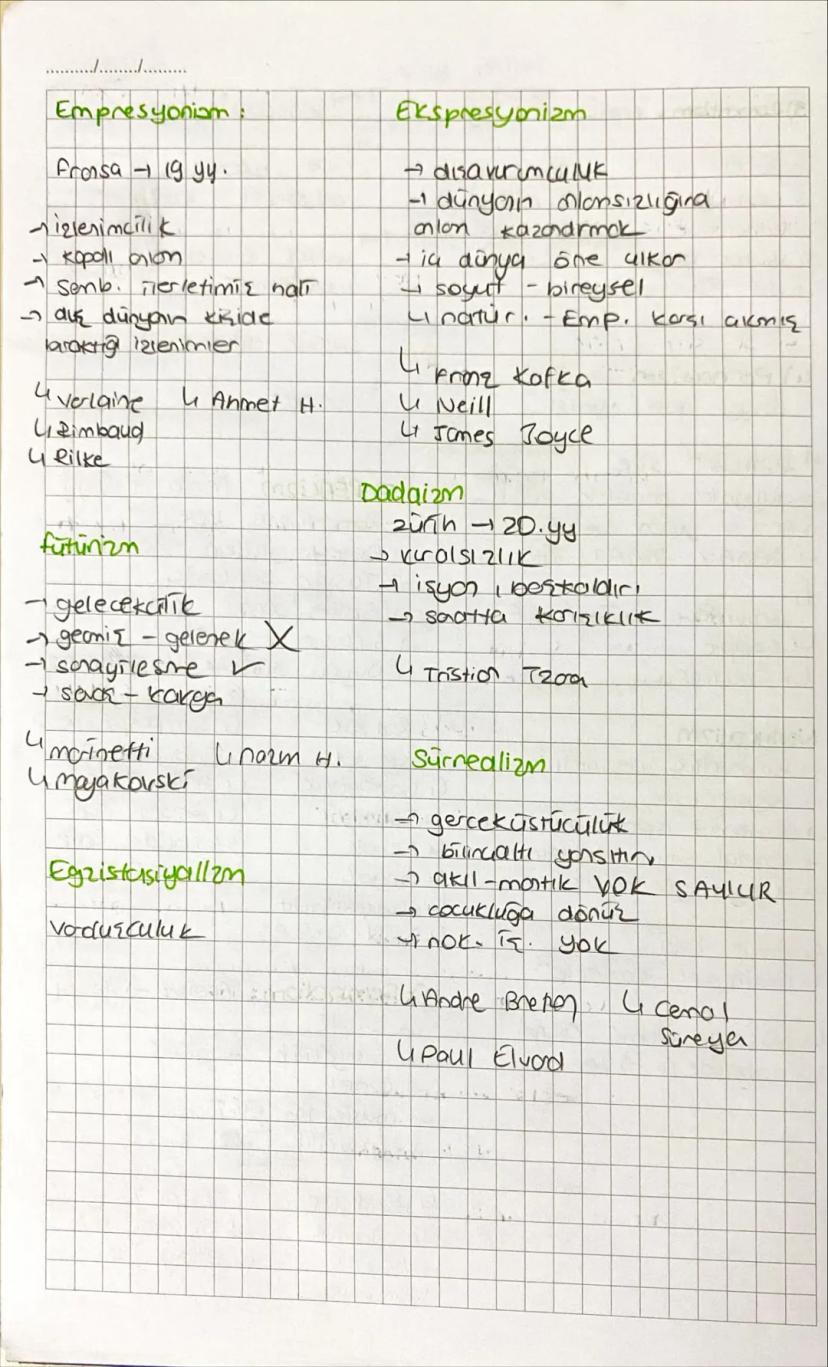 ........../......../.........
Empresyonizm :
Fransa → 19 yy.
→ izlenimcilik
→ kapalı anlam
→ Semb. ilerletimiş hali
→ dış dünyanın kişide
bıraktığı izlenimler
↳ Verlaine ↳ Ahmet H.
↳ Rimbaud
↳ Rilke
fütürizm
→ gelecekcilik
→ geçmiş - gelenek X
→ sanayileşme ✓
→ savaş - kavga
↳ marinetti ↳ nazım H.
↳ mayakovski
Egzistasiyalizm
varoluşculuk
Ekspresyonizm
→ dışavurumculuk
→ dünyanın anlamsızlığına
anlam kazandırmak
→ iç dünya öne çıkar
→ soyut - bireysel
↳ natür. - Emp. karşı çıkmış
↳ Franz Kafka
↳ Neill
↳ James Joyce
Dadaizm
zürih → 20.yy
→ kuralsızlık
→ isyan, başkaldırı
→ sanatta karışıklık
↳ Tristian Tzara
Sürrealizm
→ gerçeküstücülük
→ bilinçaltı yansıtın
→ akıl-mantık YOK SAYILIR
→ çocukluğa dönüş
→ nok. iş. yok
↳ Andre Breton ↳ Cemal
Süreya
↳ Paul Eluard